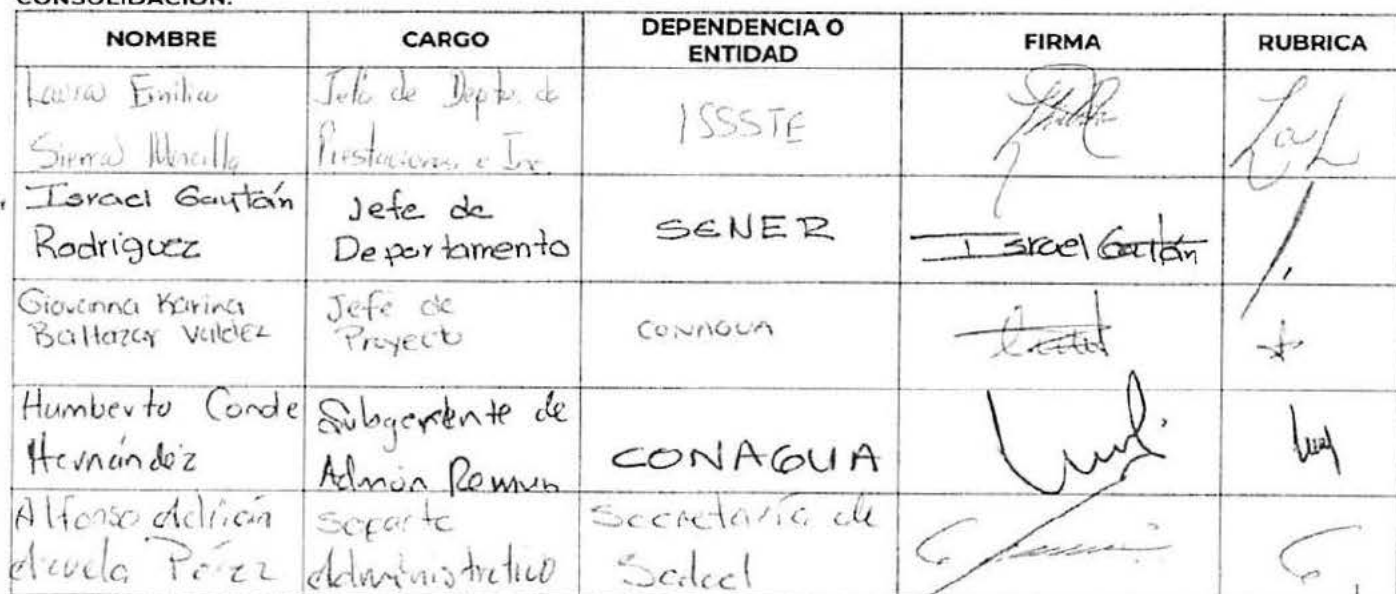 CONSOLIDACIÓN:
NOMBRE CARGO DEPENDENCIA O ENTIDAD FIRMA RUBRICA
Laura Emilia
Sierra
Jefe de Depto. de
Prestaciones e
ISSSTE
Israel Gaytán
Rodríguez
Jefe de
Departamento
SENER
Israel Gaytán
Giovanna Karina
Baltazar Valdez
Jefe de
Proyecto
CONAGUA
Humberto Conde
Hernández
Subgerente de
Admón Remun
CONAGUA
Alfonso Adrián
Pérez
Soporte
Administrativo
Secretaría de
Salud